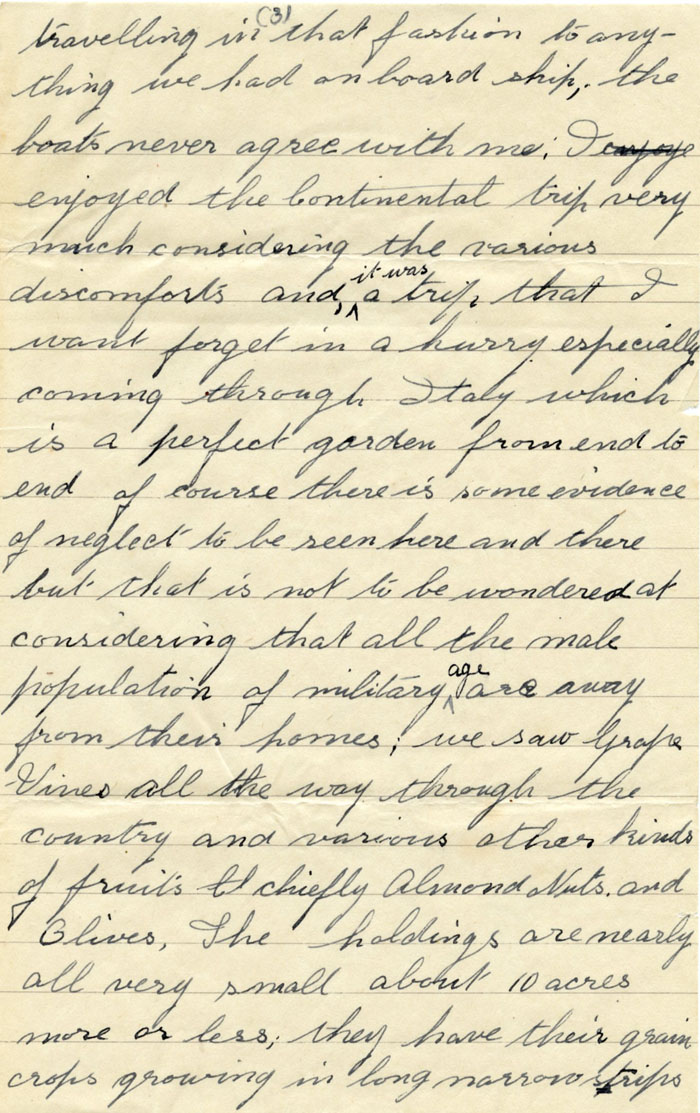 (3)
travelling in that fashion to any-
thing we had on board ship, the
boats never agree with me; I enjoye
enjoyed the Continental trip very
much considering the various
discomforts and, it was a trip, that I
want forget in a hurry especially
coming through Italy which
is a perfect garden from end to
end of course there is some evidence
of neglect to be seen here and there
but that is not to be wondered at
considering that all the male
population of military age are away
from their homes; we saw Grape
Vines all the way through the
country and various other kinds
of fruits & chiefly Almond Nuts. and
Olives, The holdings are nearly
all very small about 10 acres
more or less; they have their grain
crops growing in long narrow strips